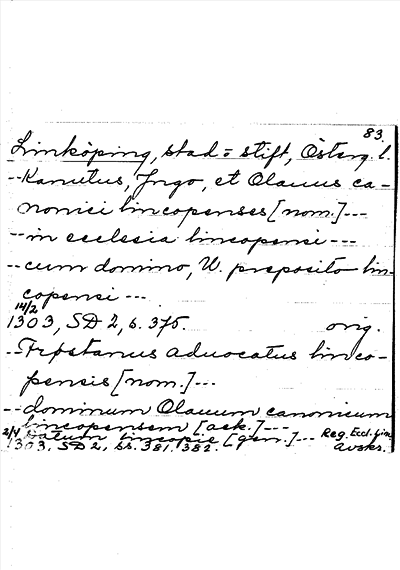 83.
Linköping, stad o stift, Österg. l.
--Kanutus, Jngo, et Olauus ca-
nonici lincopenses [nom.]---
--in ecclesia lincopensi---
--cum domino, U. preposito lin-
copensi---
14/2
1303, SD 2, s. 375. orig.
aduocatus linco-
pensis [nom.]---
--dominum Olauum canonicum
lincopensem [ack.]---
Datum lincopie [gen.]--- Reg. Eccl. Linc.
2/4 1303, SD 2, ss. 381. 382. avskr.